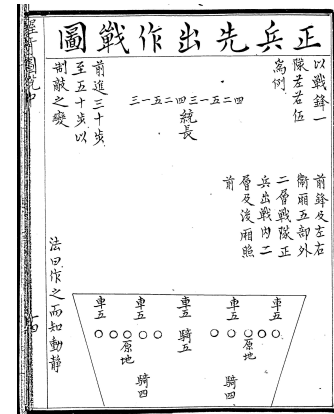 正兵先出作戰圖
以戰鋒一
隊左右伍
為例
四二五三一四二五三一
統長
前進三十步
至五十步以
制敵之變
前鋒及左右
衛廂五部外
二層戰隊正
兵出戰內二
層及後廂照
前
法曰作之而知動靜
車五
車五
車五
車五
車五
原地
騎五
原地
騎四
騎四